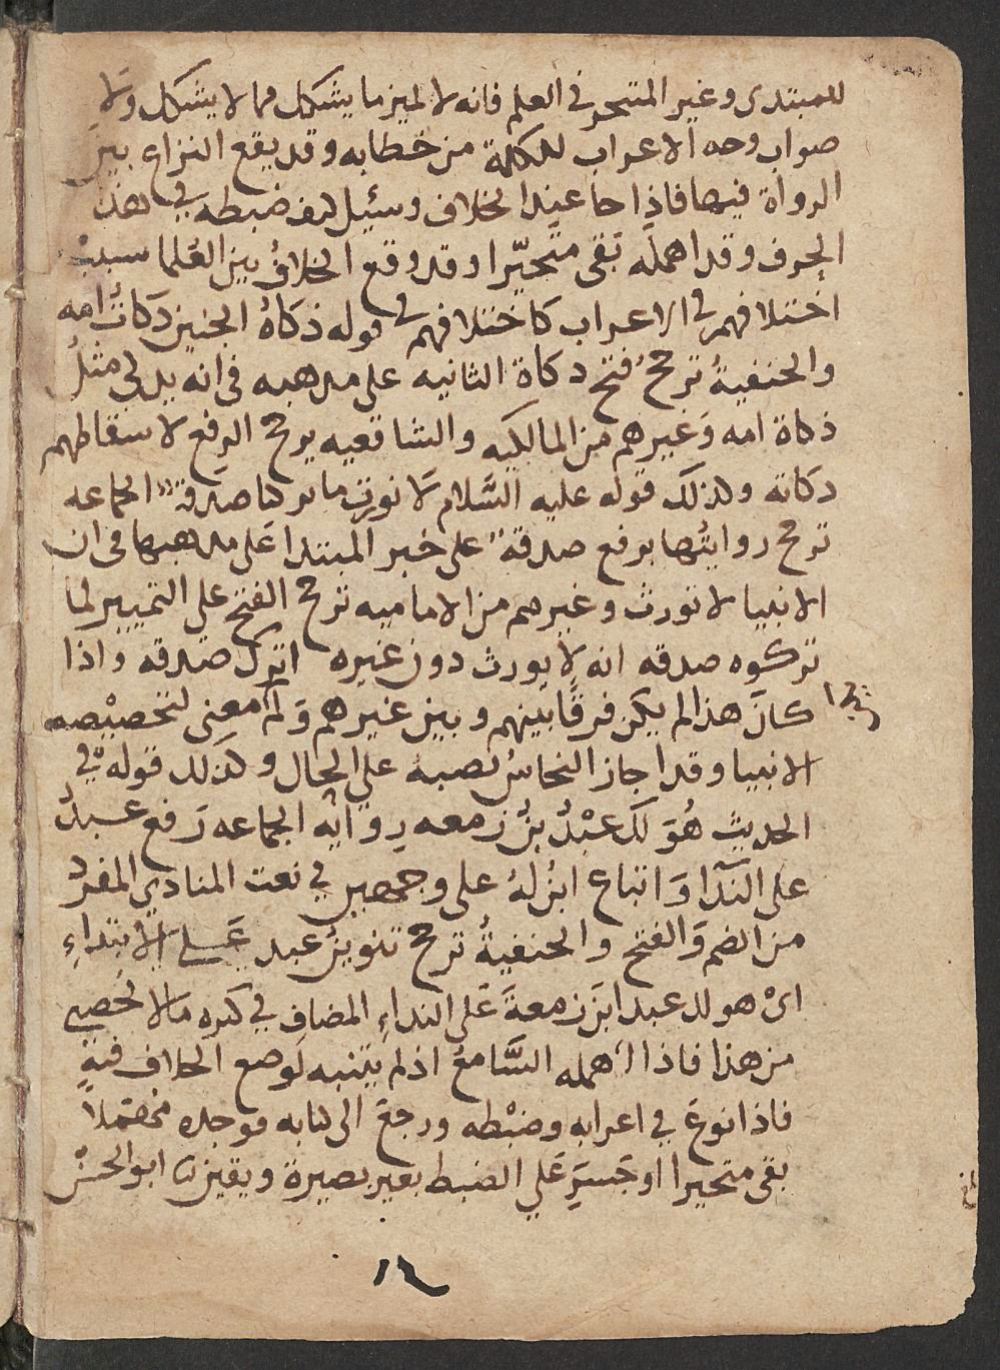 للمبتدى وغير المتبحر فى العلم فانه لا يميز ما يشكل مما لا يشكل ولا
صواب وجه الاعراب للكلمة من خطايه وقد يقع النزاع بين
الرواة فيها فاذا جا عند الخلاف وسئيل كيف ضبطه فى هذا
الحرف وقد اهمله بقى متحيّرا وقد وقع الخلافُ بين العُلما بسبب
اختلافهم فى الاعراب كاختلافهم فى قوله ذكاةُ الجنين ذكاتُ امه
والحنفيةُ ترجحُ فتح ذكاة الثانيه على مذهبه فى انه يذكى مثلُ
ذكاة امه وَغيرهم من المالكيه والشافعيه يرجح الرفع لاسقاطهم
ذكاته وكذلكَ قوله عليه السَّلام لَا نورث ما تركنا صدقةٌ الجماعه
ترجح روايتُها برفع صدقةٌ على خبر المبتدا عَلى مذهبها فى ان
الانبيا لا تورث وغيرهم من الاماميه ترجح الفتح على التمييز لما
تركوه صدقه انه لا يورث دون غيره اترك صَدقه واذا
كانَ هذا لم يكن فرقًا بينهم وبين غيرهم وَلم معنى لتخصيْصه
الانبيا وقد اجاز النحاسُ نصبهُ على الحال وكذلك قوله فى
الحديث هُوَ لك عبْدُ بنُ زمعه رِوَايه الجماعه رَفع عبدُ
على النّدَا وَاتباع ابنُ لهُ على وجهين فى نعت المنادى المفرد
من الضم وَالفتح والحنفيةُ ترجح تنوينُ عبد عَلى الابتداءِ
اىْ هو لك عبد ابن زمعةَ عَلى النداءِ المضاف فى كثره ما لا يُحصى
من هذا فاذا اهمله السَّامعُ اذ لم يتنبه لَوضع الخلاف فيه
فاذا نوزعَ فى اعرابه وضبْطه ورجعَ الى كتابه فوجده محتملاً
بقى متحيرا او جَسرَ عَلي الضبط بغير بصيرة ويقين ابو الحسن
١٤